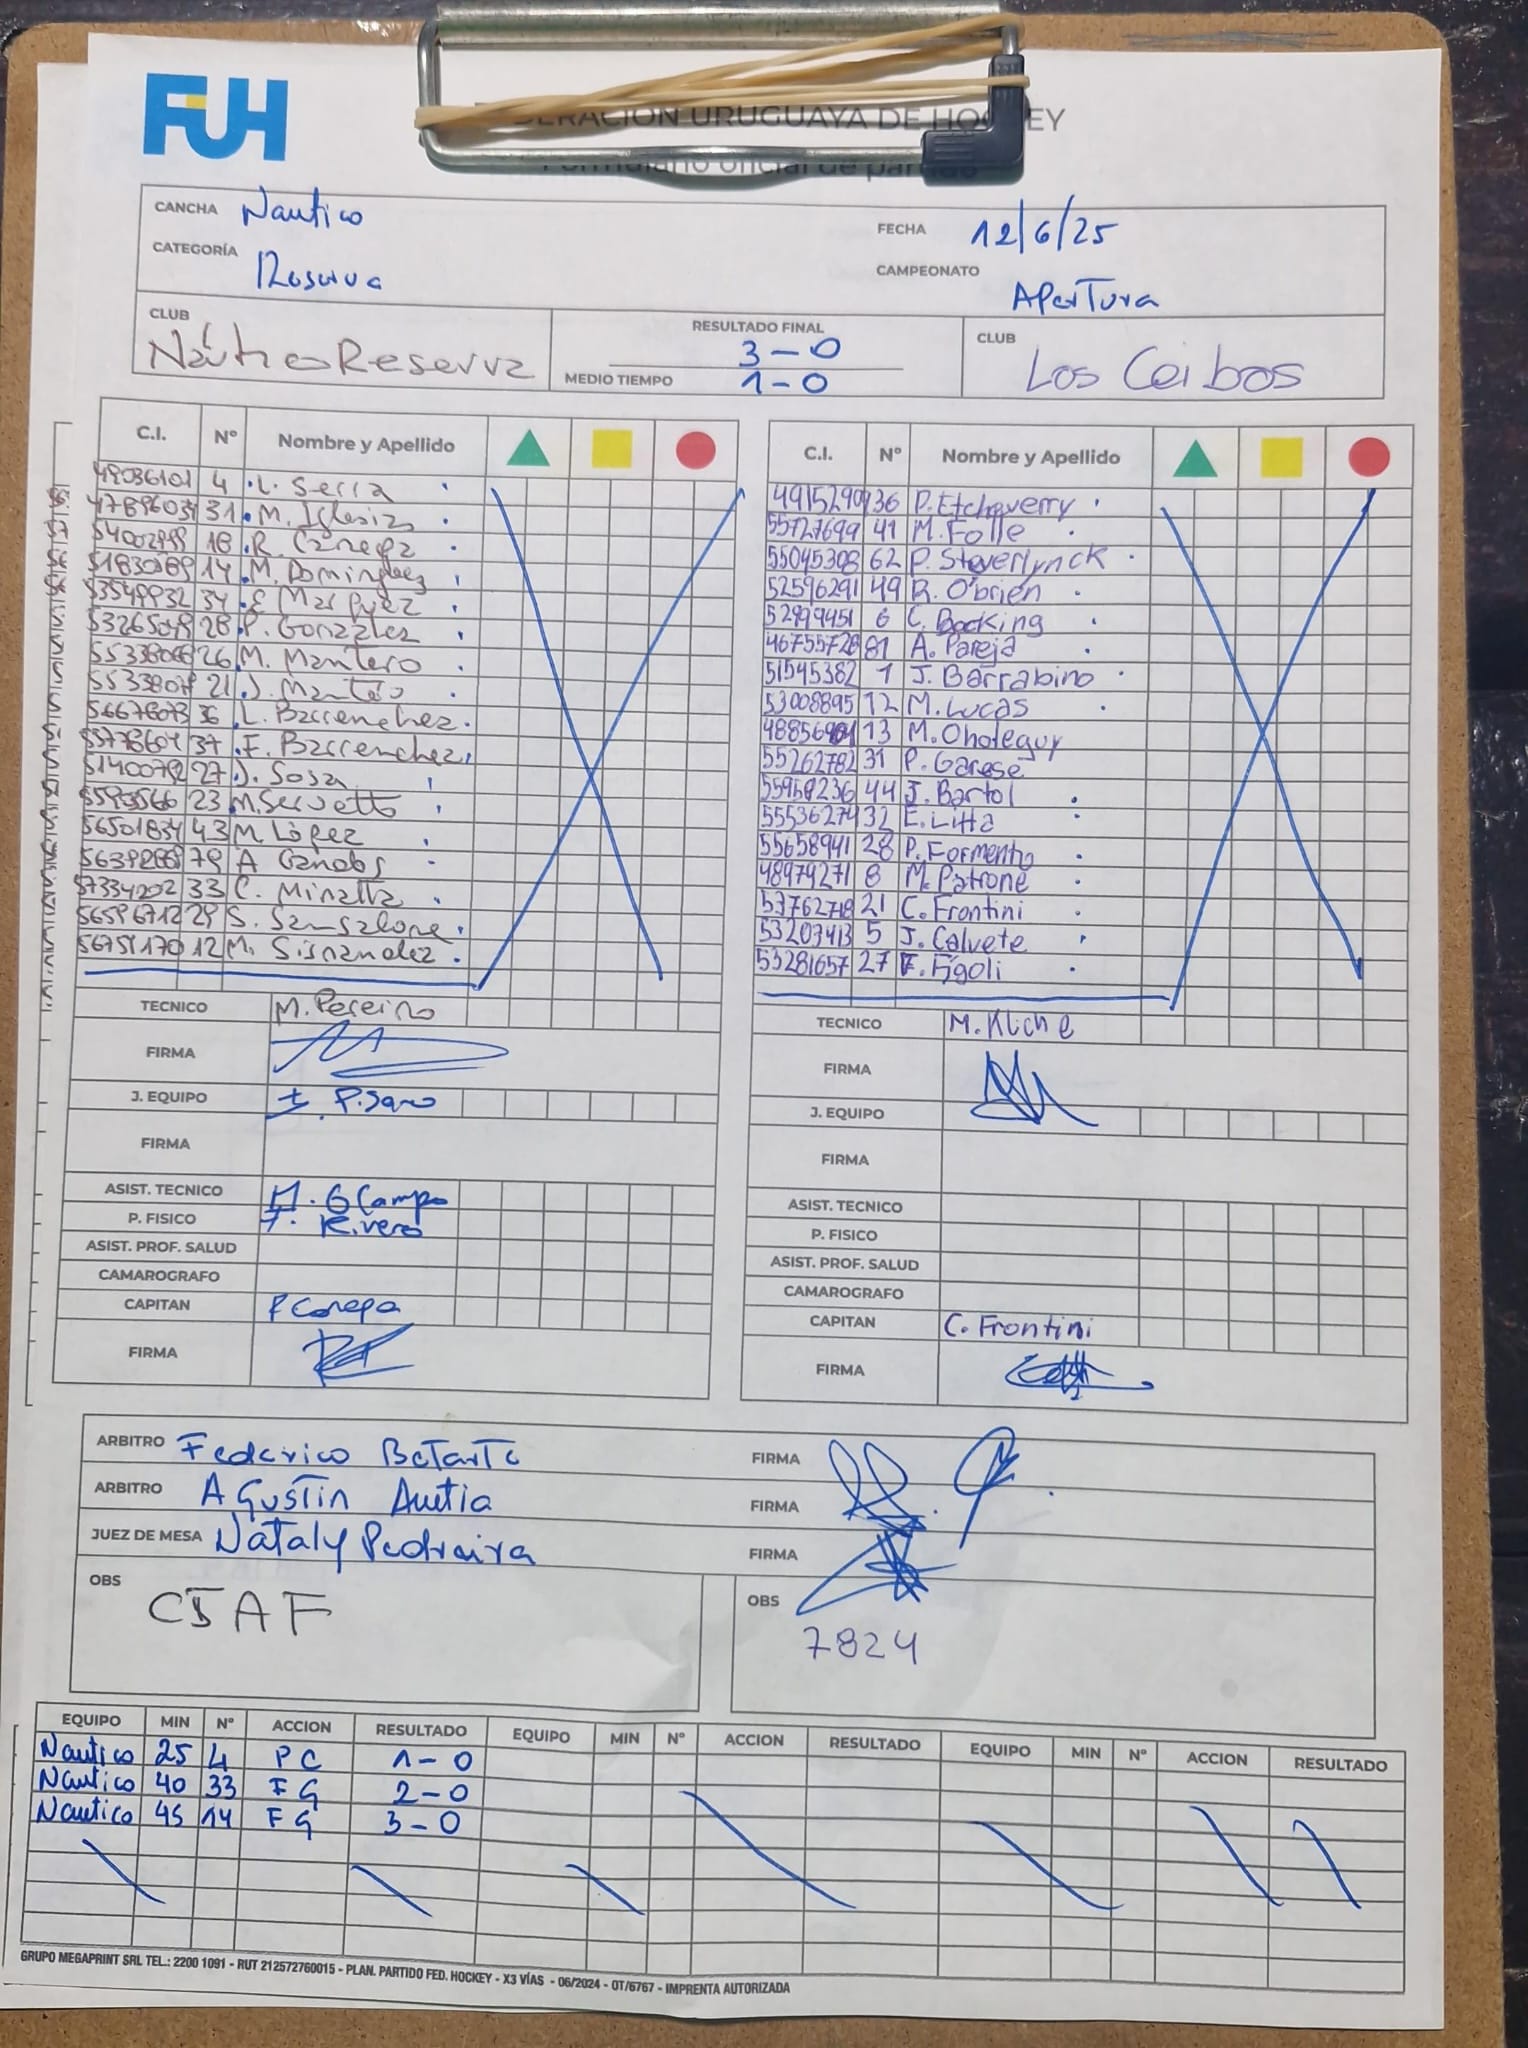 FUH
FEDERACIÓN URUGUAYA DE HOCKEY
Formulario oficial de partido
CANCHA Nautico
FECHA 12/6/25
CATEGORÍA Reserva
CAMPEONATO Apertura
CLUB Náutico Reserva
RESULTADO FINAL 3-0
MEDIO TIEMPO 1-0
CLUB Los Ceibos
C.I. Nº Nombre y Apellido
49036101 4 L. Serra
31 M. Iglesias
18 R. Canepa
14 M. Dominguez
34 E Marquez
28 P. Gonzalez
26 M. Mantero
21 J. Mantero
36 L. Barrenechez
37 F. Barrenechez
27 J. Sosa
23 M. Servetto
56501834 43 M. López
79 A Canobs
57334202 33 C. Minalta
56596712 29 S. Sansalone
56751170 12 M. Sisnandez
TECNICO M. Pereiro
FIRMA
J. EQUIPO
FIRMA
ASIST. TECNICO
P. FISICO
ASIST. PROF. SALUD
CAMAROGRAFO
CAPITAN
FIRMA
C.I. Nº Nombre y Apellido
36 P. Etcheverry
55727699 41 M. Folle
55045308 62 P. Steverlynck
52596291 49 R. O'brien
52999451 6 C. Bocking
81 A. Pareja
51545382 1 J. Barrabino
53008895 12 M. Lucas
13 M. Ohoteguy
55262782 31 P. Garese
44 J. Bartol
55536274 32 E. Litta
55658941 28 P. Formento
48979271 8 M. Patrone
21 C. Frontini
53203413 5 J. Calvete
53281657 27 F. Figoli
TECNICO M. Kliche
FIRMA
J. EQUIPO
FIRMA
ASIST. TECNICO
P. FISICO
ASIST. PROF. SALUD
CAMAROGRAFO
CAPITAN C. Frontini
FIRMA
ARBITRO Federico Betarte FIRMA
ARBITRO Agustin Autia FIRMA
JUEZ DE MESA Nataly Pedreira FIRMA
OBS CIAF
OBS 7824
EQUIPO MIN Nº ACCION RESULTADO EQUIPO MIN Nº ACCION RESULTADO EQUIPO MIN Nº ACCION RESULTADO
Nautico 25 4 PC 1-0
Nautico 40 33 FG 2-0
Nautico 45 14 FG 3-0
GRUPO MEGAPRINT SRL TEL.: 2200 1091 - RUT 212572760015 - PLAN. PARTIDO FED. HOCKEY - X3 VÍAS - 06/2024 - OT/6767 - IMPRENTA AUTORIZADA